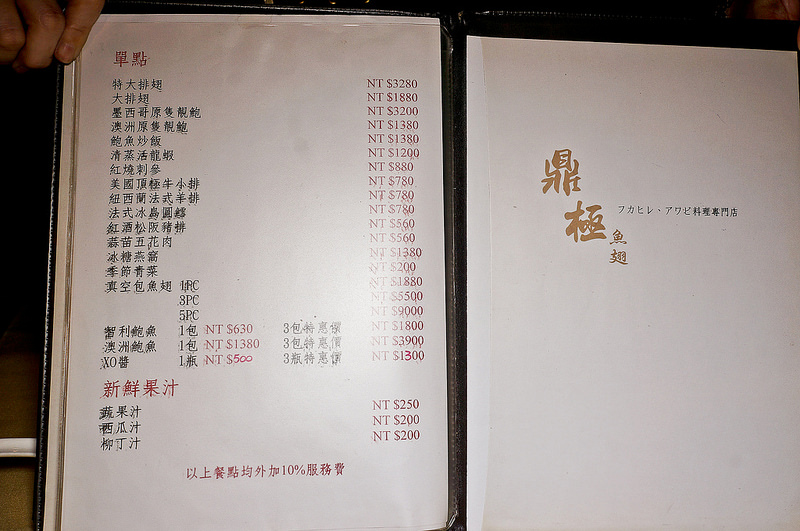 單點
特大排翅 NT $3280
大排翅 NT $1880
墨西哥原隻靚鮑 NT $3200
澳洲原隻靚鮑 NT $1380
鮑魚炒飯 NT $1380
清蒸活龍蝦 NT $1200
紅燒刺參 NT $880
美國頂極牛小排 NT $780
紐西蘭法式羊排 NT $780
法式冰島圓鱈 NT $780
紅酒松阪豬排 NT $560
蒜苗五花肉 NT $560
冰糖燕窩 NT $1380
季節青菜 NT $200
真空包魚翅 1PC NT $1880
3PC NT $5500
5PC NT $9000
智利鮑魚 1包 NT $630 3包特惠價 NT $1800
澳洲鮑魚 1包 NT $1380 3包特惠價 NT $3900
XO醬 1瓶 NT $500 3瓶特惠價 NT $1300
新鮮果汁
蔬果汁 NT $250
西瓜汁 NT $200
柳丁汁 NT $200
以上餐點均外加10%服務費
鼎極魚翅
フカヒレ、アワビ料理專門店